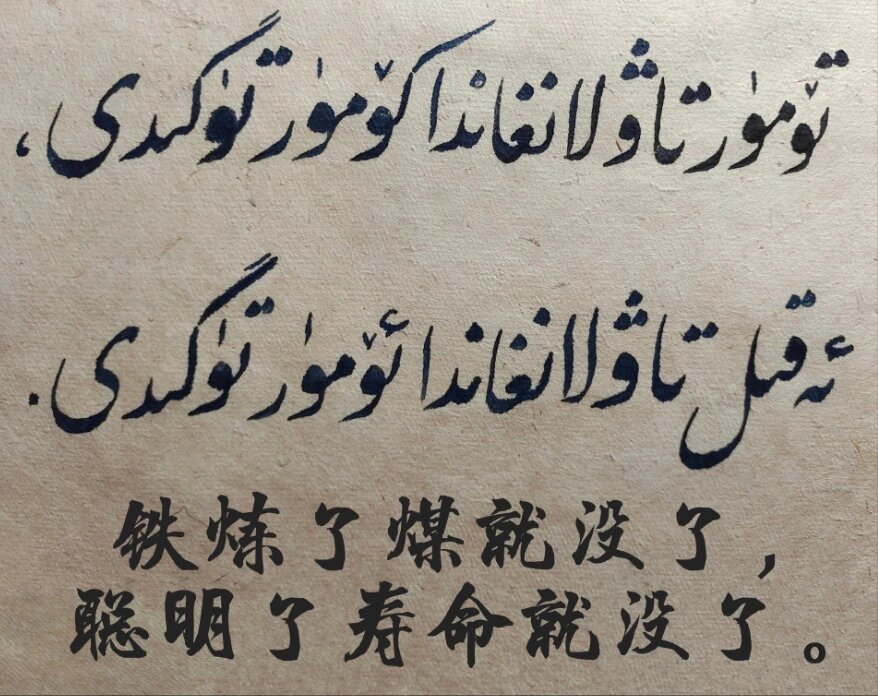 تۆمۈر تاۋلانغاندا كۆمۈر تۈگىدى،
ئەقىل تاۋلانغاندا ئۆمۈر تۈگىدى.
铁炼了煤就没了，
聪明了寿命就没了。